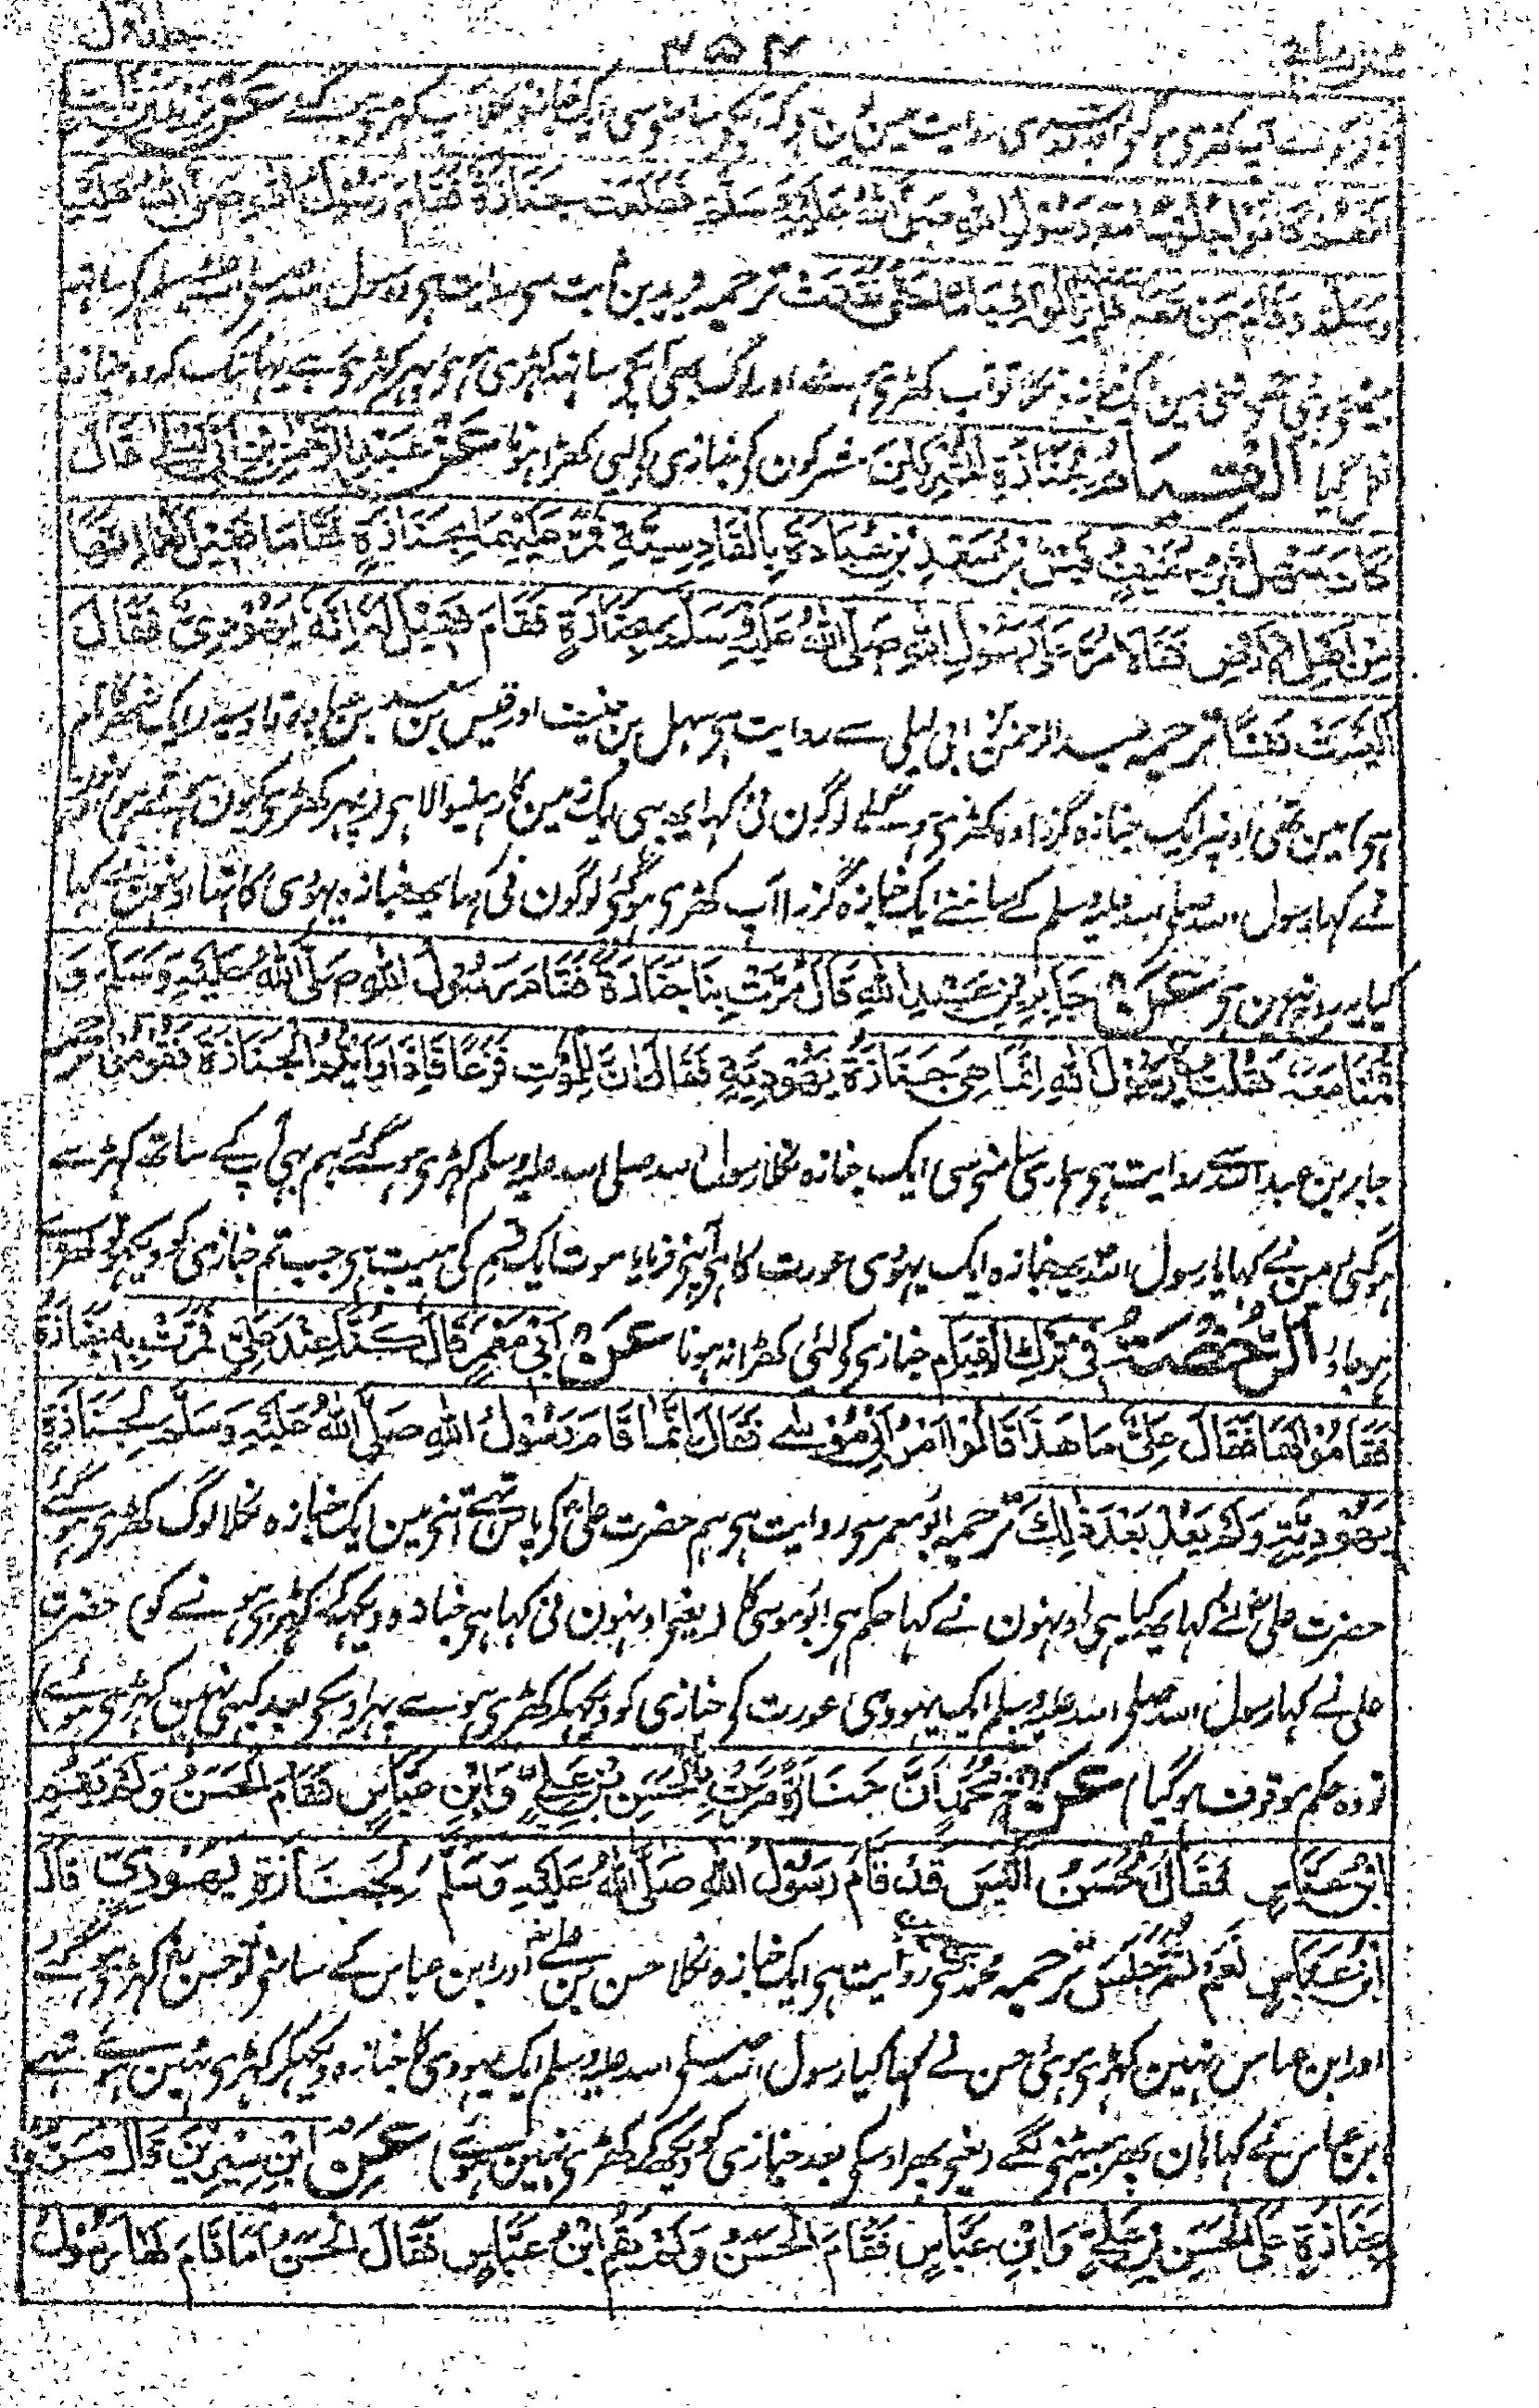 جلد اول ۴۵۴
کھڑی ہو گئے عن
انهم كانوا جلوسا مع رسول الله صلى الله عليه وسلم فطلعت جنازة فقام رسول الله صلى الله عليه
وسلم وقام من معه فلم يزالوا قياما حتى نفذت ترجمہ یزید بن ثابت سی روایت ہی وہ رسول اللہ صلی اللہ علیہ وسلم کی ساتھ
بیٹھی تھی اتنی مین ایک جنازہ نکلا تو آپ کھڑی ہوئے اور لوگ بھی آپکی ساتھ کھڑی ہوئی پھر کھڑی رہے یہانتک کہ وہ جنازہ
نکل گیا القيام لجنازة المشركين مشرکون کو جنازی کو لیی کھڑا ہونا عن عبد الرحمن بن ابي ليلى قال
كان سهل بن حنيف وقيس بن سعد بن عبادة بالقادسية فمر عليهما بجنازة فقاما فقيل لهما انها
من اهل الارض فقالا مر على رسول الله صلى الله عليه وسلم بجنازة فقام فقيل له انه يهودي فقال
اليست نفسا ترجمہ عبد الرحمن بن ابی لیلی سے روایت ہی سہل بن حنیف اور قیس بن سعد بن عبادہ قادسیہ
ہی مین تھی اونپر ایک جنازہ گزرا وہ کھڑی ہو گئے لوگون نی کہا یہ بہی ایک زمین کا رہنیوالا ہی پہر کھڑی کیون ہوتے ہو
نے کہا رسول اللہ صلی اللہ علیہ وسلم کے سامنے ایک جنازہ گزرا آپ کھڑی ہو گئی لوگون نی کہا یہ جنازہ یہودی کا تھا اونہون نے کہا
کیا یہ روح نہین ہی عن جابر بن عبد الله قال مرت بنا جنازة فقام رسول الله صلى الله عليه وسلم و
قمنا معه فقلت يا رسول الله انما هي جنازة يهودية فقال ان للموت فزعا فاذا رايتم الجنازة فقوموا
جابر بن عبد اللہ سے روایت ہی ہماری سامنی سی ایک جنازہ نکلا رسول اللہ صلی اللہ علیہ وسلم کھڑی ہو گئے ہم بہی آپ کے ساتھ کھڑے
ہو گئی مین نے کہا یا رسول اللہ یہ جنازہ ایک یہودی عورت کا ہی آپنی فرمایا موت ایک قسم کی ہیبت ہی جب تم جنازی کو دیکھو تو کھڑے
ہو جاؤ الرخصة في ترك القيام جنازی کو لئی کھڑا نہ ہونا عن ابي معمر قال كنا عند علي فمرت به جنازة
فقاموا لها فقال علي ما هذا قالوا امر ابي موسى فقال انما قام رسول الله صلى الله عليه وسلم لجنازة
يهودية ولم يعد بعد ذلك ترجمہ ابو معمر سی روایت ہی ہم حضرت علی کی پاس تہے اتنی مین ایک جنازہ نکلا لوگ کھڑی ہو گئے
حضرت علی نے کہا یہ کیا ہی اونہون نے کہا حکم ہی ابو موسی کا (یعنی اونہون نی کہا ہی جنازہ دیکھکر کھڑی ہونے کو) حضرت
علی نے کہا رسول اللہ صلی اللہ علیہ وسلم ایک یہودی عورت کی جنازی کو دیکھکر کھڑی ہوئے پہر اوسکی بعد کبہی نہین کھڑی ہوئے (
تو وہ حکم موقوف ہو گیا) عن محمد ان جنازة مرت بالحسن بن علي وابن عباس فقام الحسن ولم يقم
ابن عباس فقال الحسن اليس قد قام رسول الله صلى الله عليه وسلم لجنازة يهودي قال
ابن عباس نعم ثم جلس ترجمہ محمد سی روایت ہی ایک جنازہ نکلا حسن بن علی اور ابن عباس کے سامنی تو حسن کھڑی ہو گئے
اور ابن عباس نہین کھڑی ہوئی حسن نے کہا کیا رسول اللہ صلی اللہ علیہ وسلم ایک یہودی کا جنازہ دیکھکر کھڑی نہین ہوئے تہے
ابن عباس نے کہا ہان پھر بیٹھنی لگے (یعنی پھر اوسکی بعد جنازی کو دیکھکے کھڑی نہین ہوئے) عن ابن سيرين قال مر
بجنازة على الحسن بن علي وابن عباس فقام الحسن ولم يقم ابن عباس فقال الحسن اما قام لها رسول